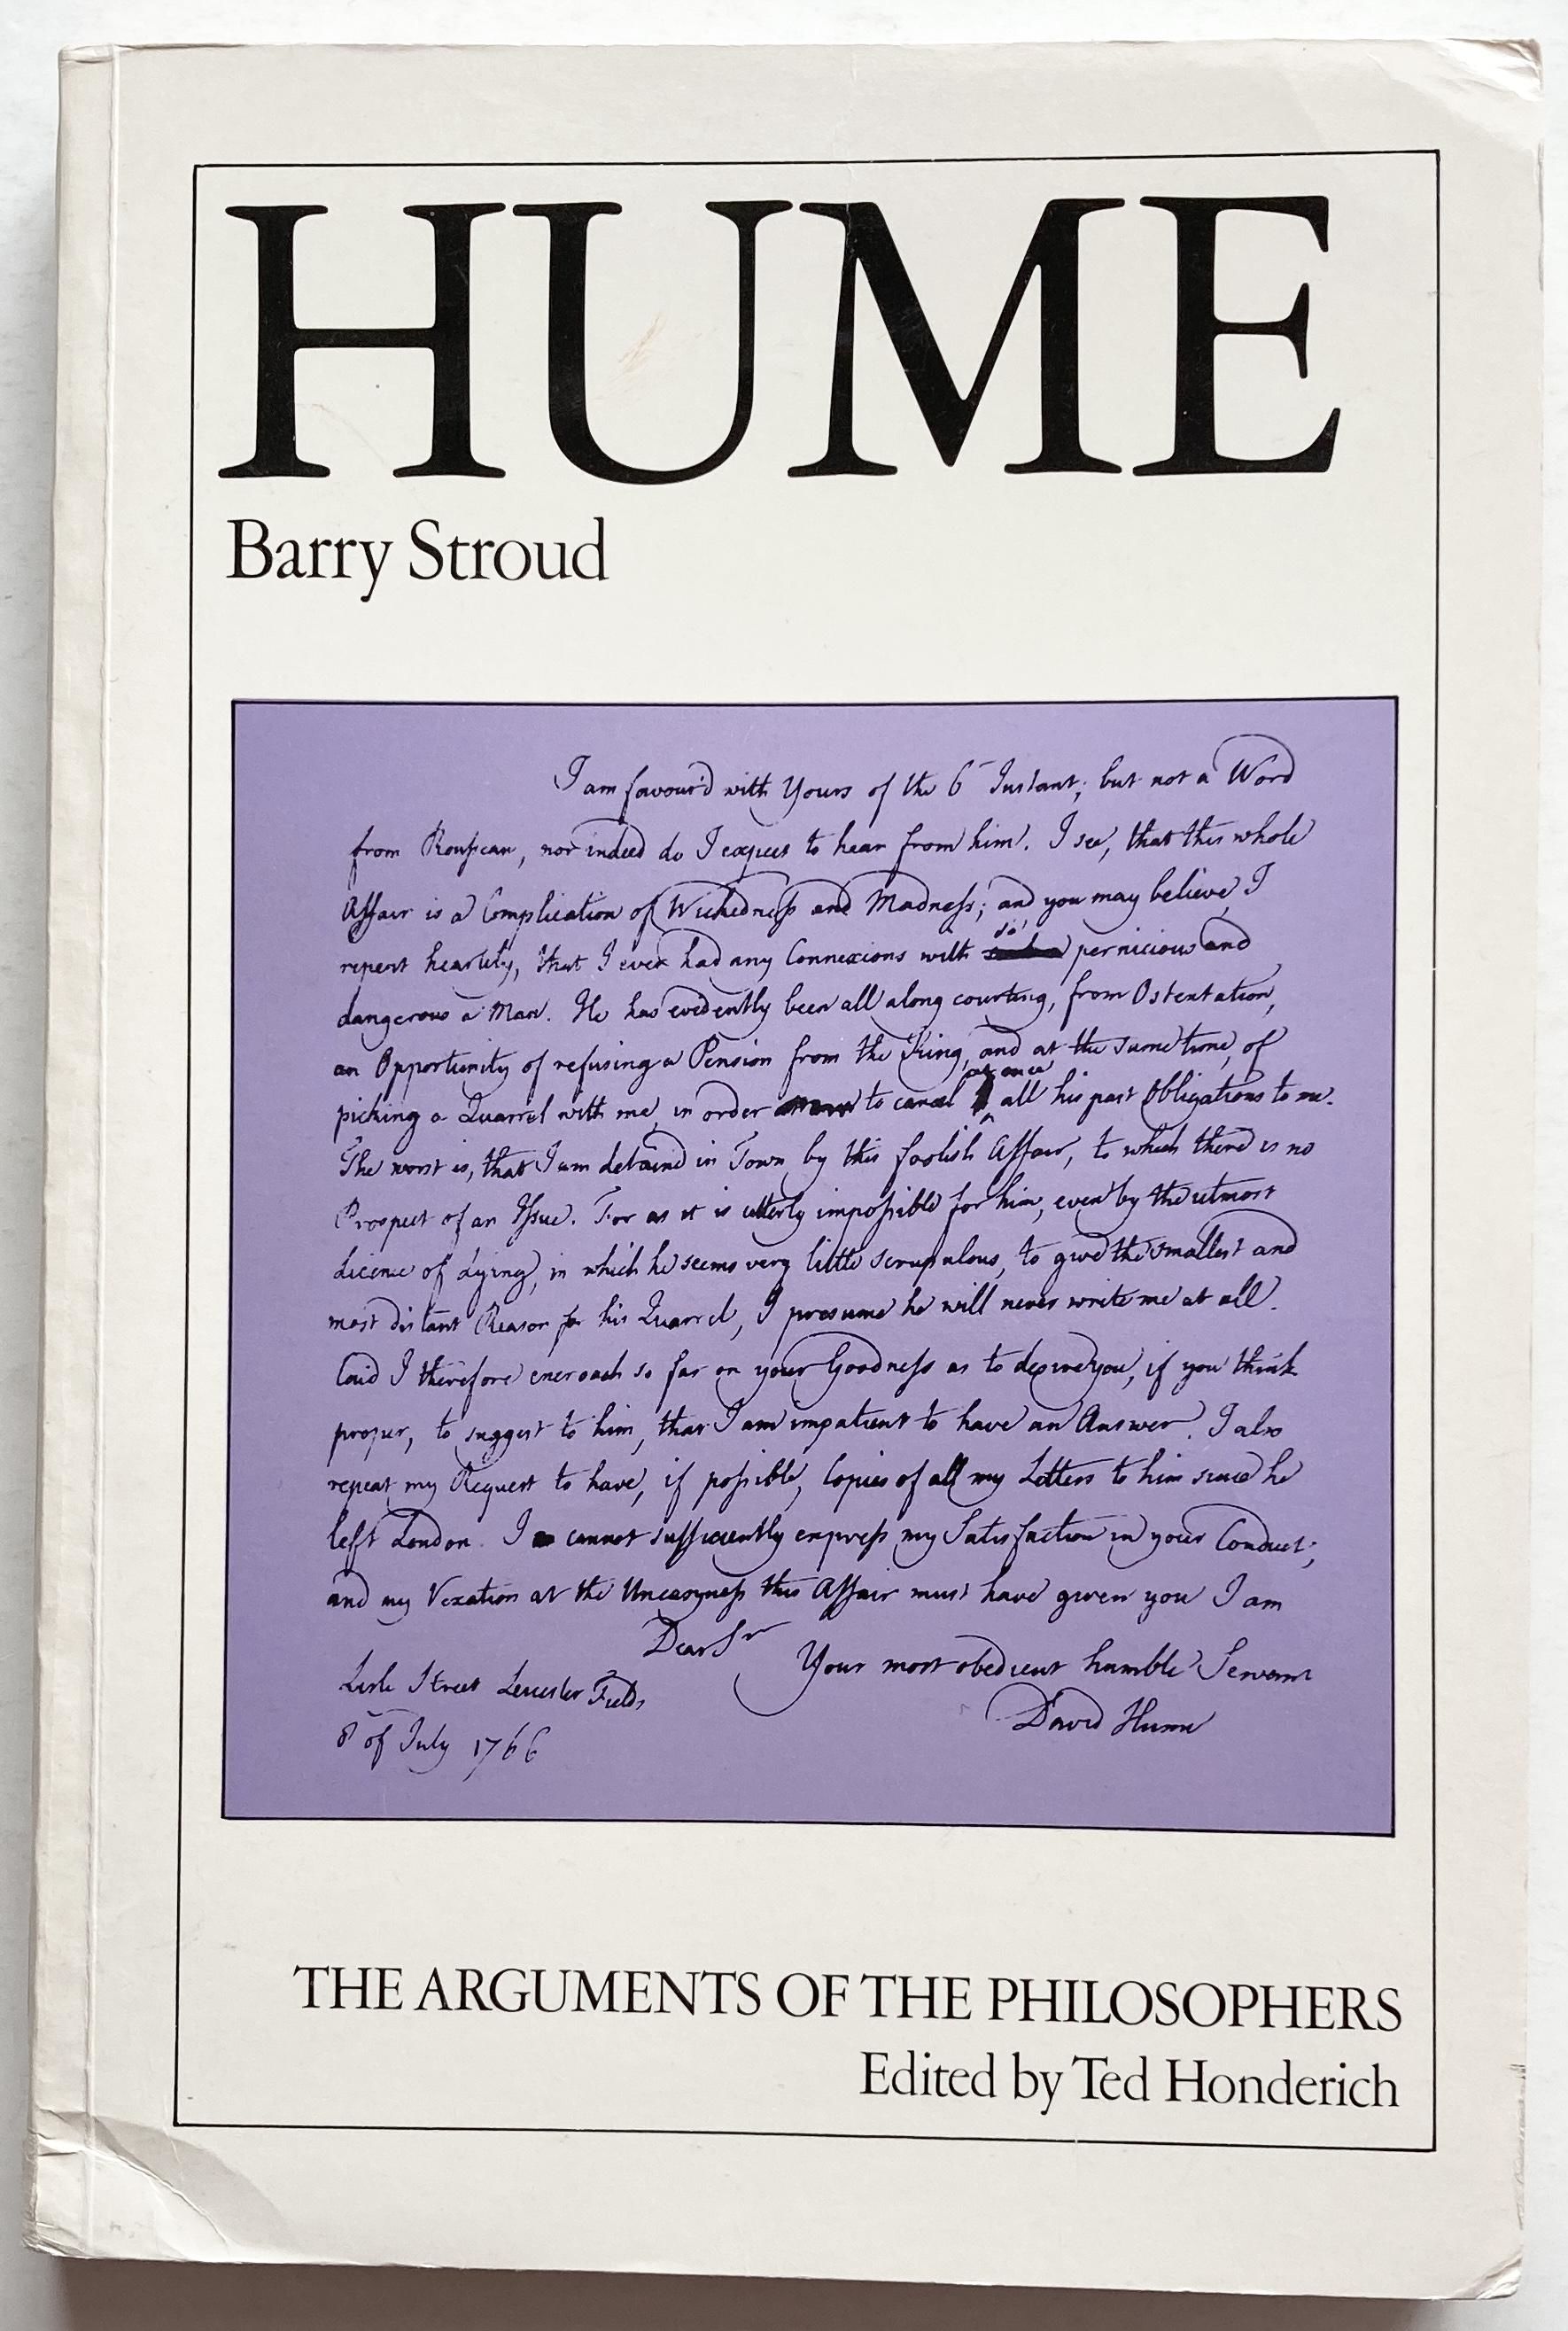 HUME
Barry Stroud
I am favour'd with Yours of the 6 Instant; but not a Word
from Rousseau, nor indeed do I expect to hear from him. I see, that this whole
Affair is a Complication of Wickedness and Madness; and you may believe, I
repent heartily, that I ever had any Connexions with so pernicious and
dangerous a Man. He has evidently been all along courting, from Ostentation,
an Opportunity of refusing a Pension from the King, and at the same time, of
picking a Quarrel with me, in order to cancel at once all his past Obligations to me.
The worst is, that I am detain'd in Town by this foolish Affair, to which there is no
Prospect of an Issue. For as it is utterly impossible for him, even by the utmost
Licence of Lying, in which he seems very little scrupulous, to give the smallest and
most distant Reason for his Quarrel, I presume he will never write me at all.
I therefore encroach so far on your Goodness as to desire you, if you think
proper, to suggest to him, that I am impatient to have an Answer. I also
repeat my Request to have, if possible, Copies of all my Letters to him since he
left London. I cannot sufficiently express my Satisfaction in your Conduct;
and my Vexation at the Uneasyness this Affair must have given you I am
Dear Sr
Your most obedient humble Servant
Lisle Street Leicester Fields
David Hume
8 of July 1766
THE ARGUMENTS OF THE PHILOSOPHERS
Edited by Ted Honderich